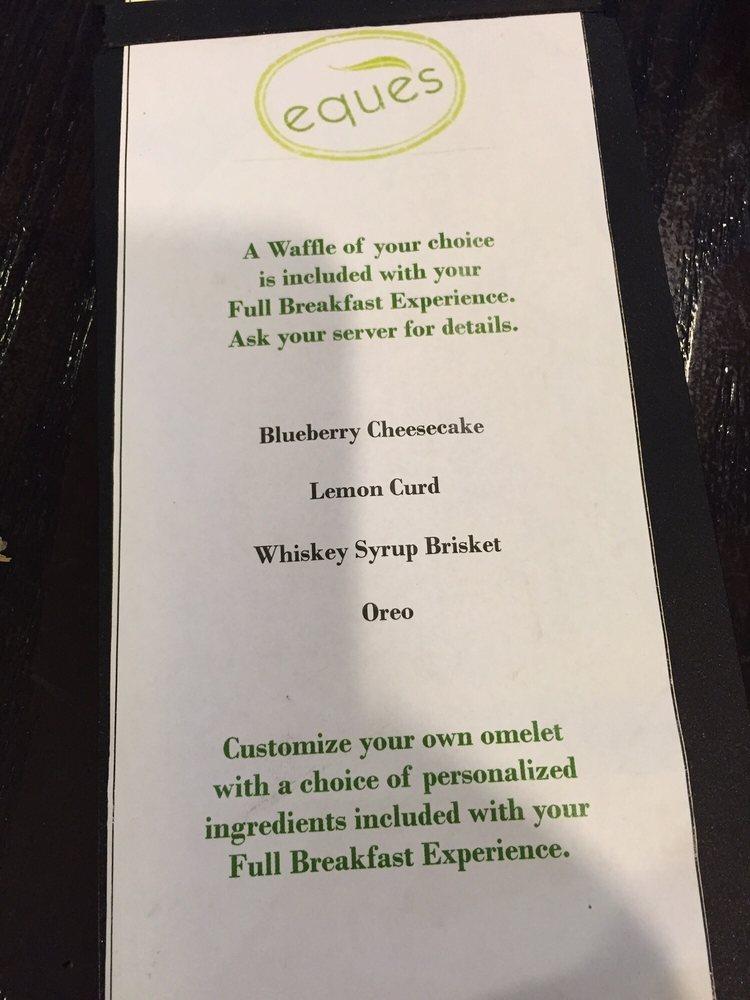 eques
A Waffle of your choice
is included with your
Full Breakfast Experience.
Ask your server for details.
Blueberry Cheesecake
Lemon Curd
Whiskey Syrup Brisket
Oreo
Customize your own omelet
with a choice of personalized
ingredients included with your
Full Breakfast Experience.